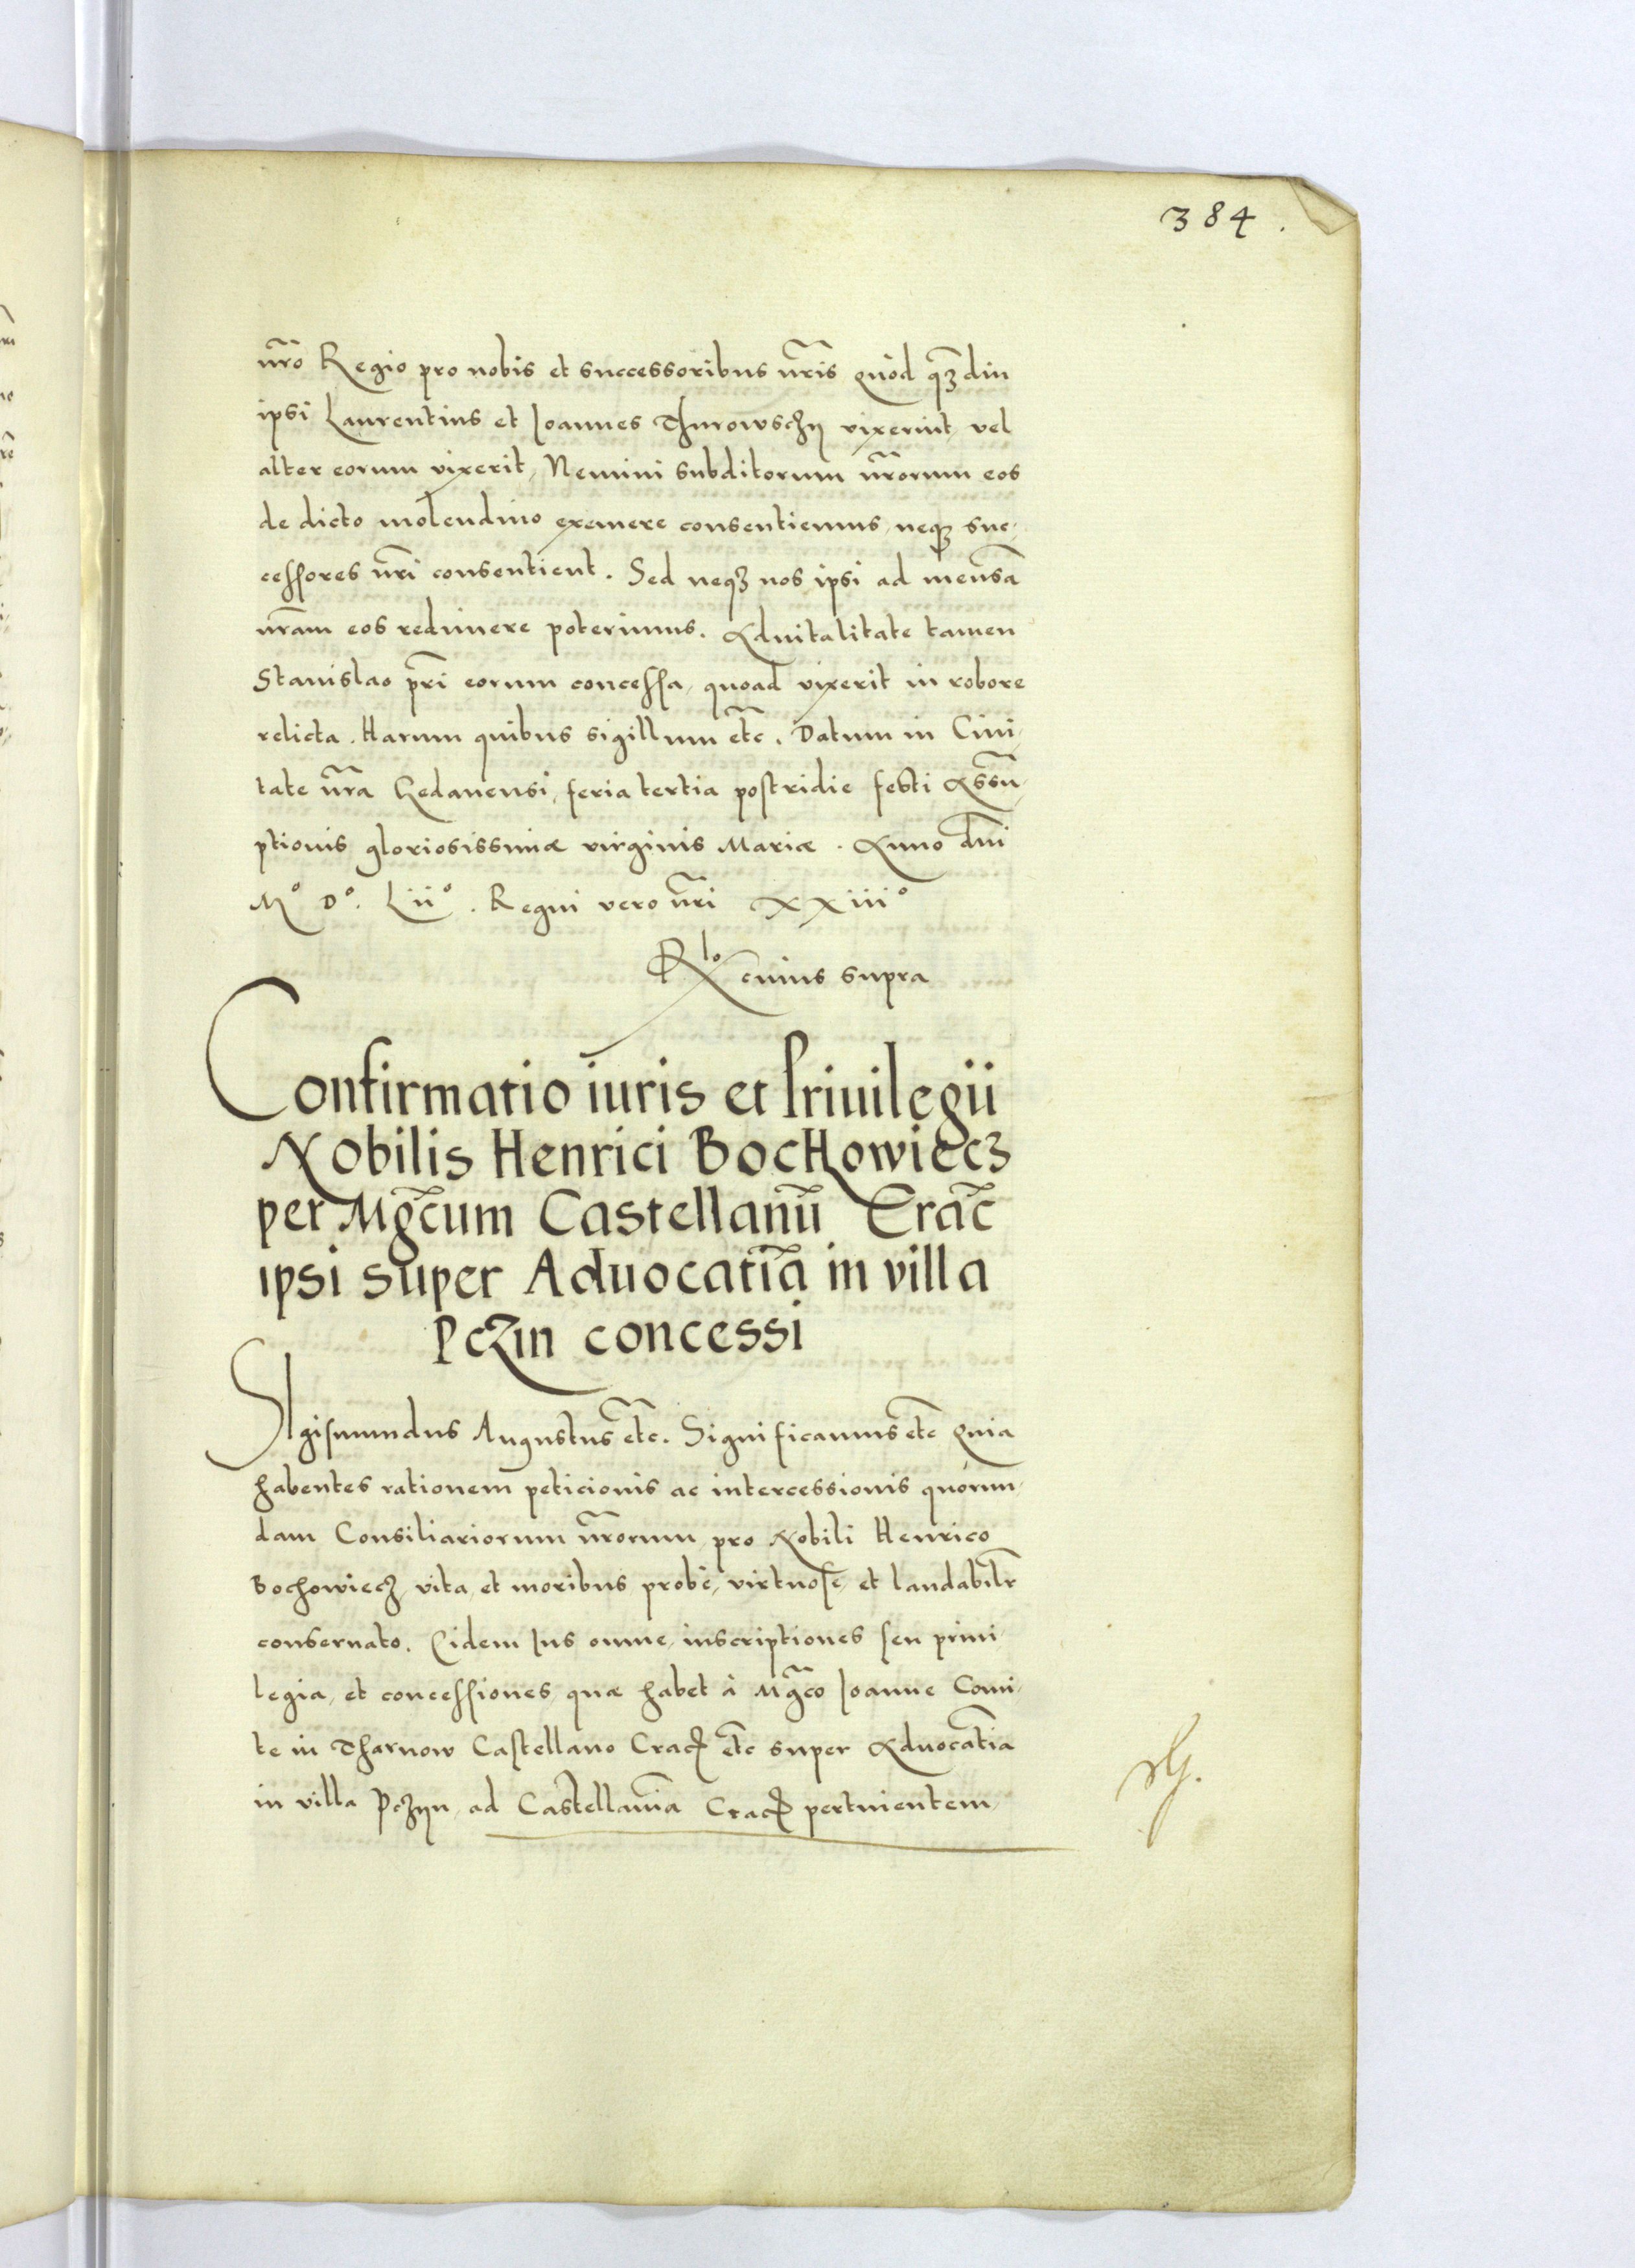 384.
nr̃o Regio pro nobis et successoribus nr̃is Quòd q̃ꝫdiu
ipsi Laurentius et Ioannes Thurowschy vixerint, vel
alter eorum vixerit, Nemini subditorum nr̃orum eos
de dicto molendino exemere consentiemus, neqꝫ suc,
cessores nr̃i consentient. Sed neqꝫ nos ipsi ad mensã
nr̃am eos redimere poterimus. Aduitalitate tamen
Stanislao pr̃i eorum concessa, quoad vixerit in robore
relicta. Harum quibus sigillum et̃c. Datum in Ciui,
tate nr̃a Gedanensi, feria tertia postridie festi Assũ,
ptionis gloriosissimæ virginis Mariæ. Anno dñi
Mº Dº. Liiº. Regni vero nr̃i xxiiiº
Rlo cuius supra
Confirmatio iuris et Priuilegii
Nobilis Henrici Bochowiecz
per Mg̃cum Castellanũ Crãc
ipsi super Aduocatiã in villa
Pczin concessi
SIgismundus Augustus et̃c. Significamus et̃c Quia
habentes rationem peticionis ac intercessionis quorun,
dam Consiliariorum nr̃orum, pro Nobili Henrico
Bochowiecz, vita, et moribus probè, virtuose, et laudabilr̃
conseruato. Eidem Ius omne, inscriptiones seu priui,
legia, et concessiones, quæ habet à Mg̃co Ioanne Comi,
te in Tharnow Castellano Crac̃ et̃c super Aduocat̃ia
in villa Pczyn, ad Castellaniã Crac̃ pertinentem,